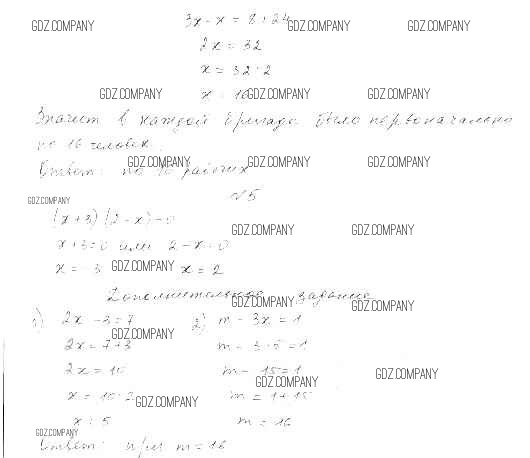 3x - x = 8 + 24
GDZ.COMPANY GDZ.COMPANY GDZ.COMPANY
2x = 32
x = 32 : 2
GDZ.COMPANY x = 16 GDZ.COMPANY GDZ.COMPANY
Значит в каждой бригаде было первоначально
по 16 человек.
Ответ: по 16 рабочих
GDZ.COMPANY GDZ.COMPANY GDZ.COMPANY
GDZ.COMPANY №5
(x+3)(2-x)=0
GDZ.COMPANY GDZ.COMPANY
x+3=0 или 2-x=0
x = -3 GDZ.COMPANY x = 2
Дополнительное задание
GDZ.COMPANY GDZ.COMPANY
1) 2x - 3 = 7 2) m - 3x = 1
GDZ.COMPANY
2x = 7+3 m - 3·5 = 1
2x = 10 m - 15 = 1
GDZ.COMPANY GDZ.COMPANY
x = 10:2 m = 1+15
GDZ.COMPANY
x = 5 m = 16
GDZ.COMPANY
Ответ: при m = 16